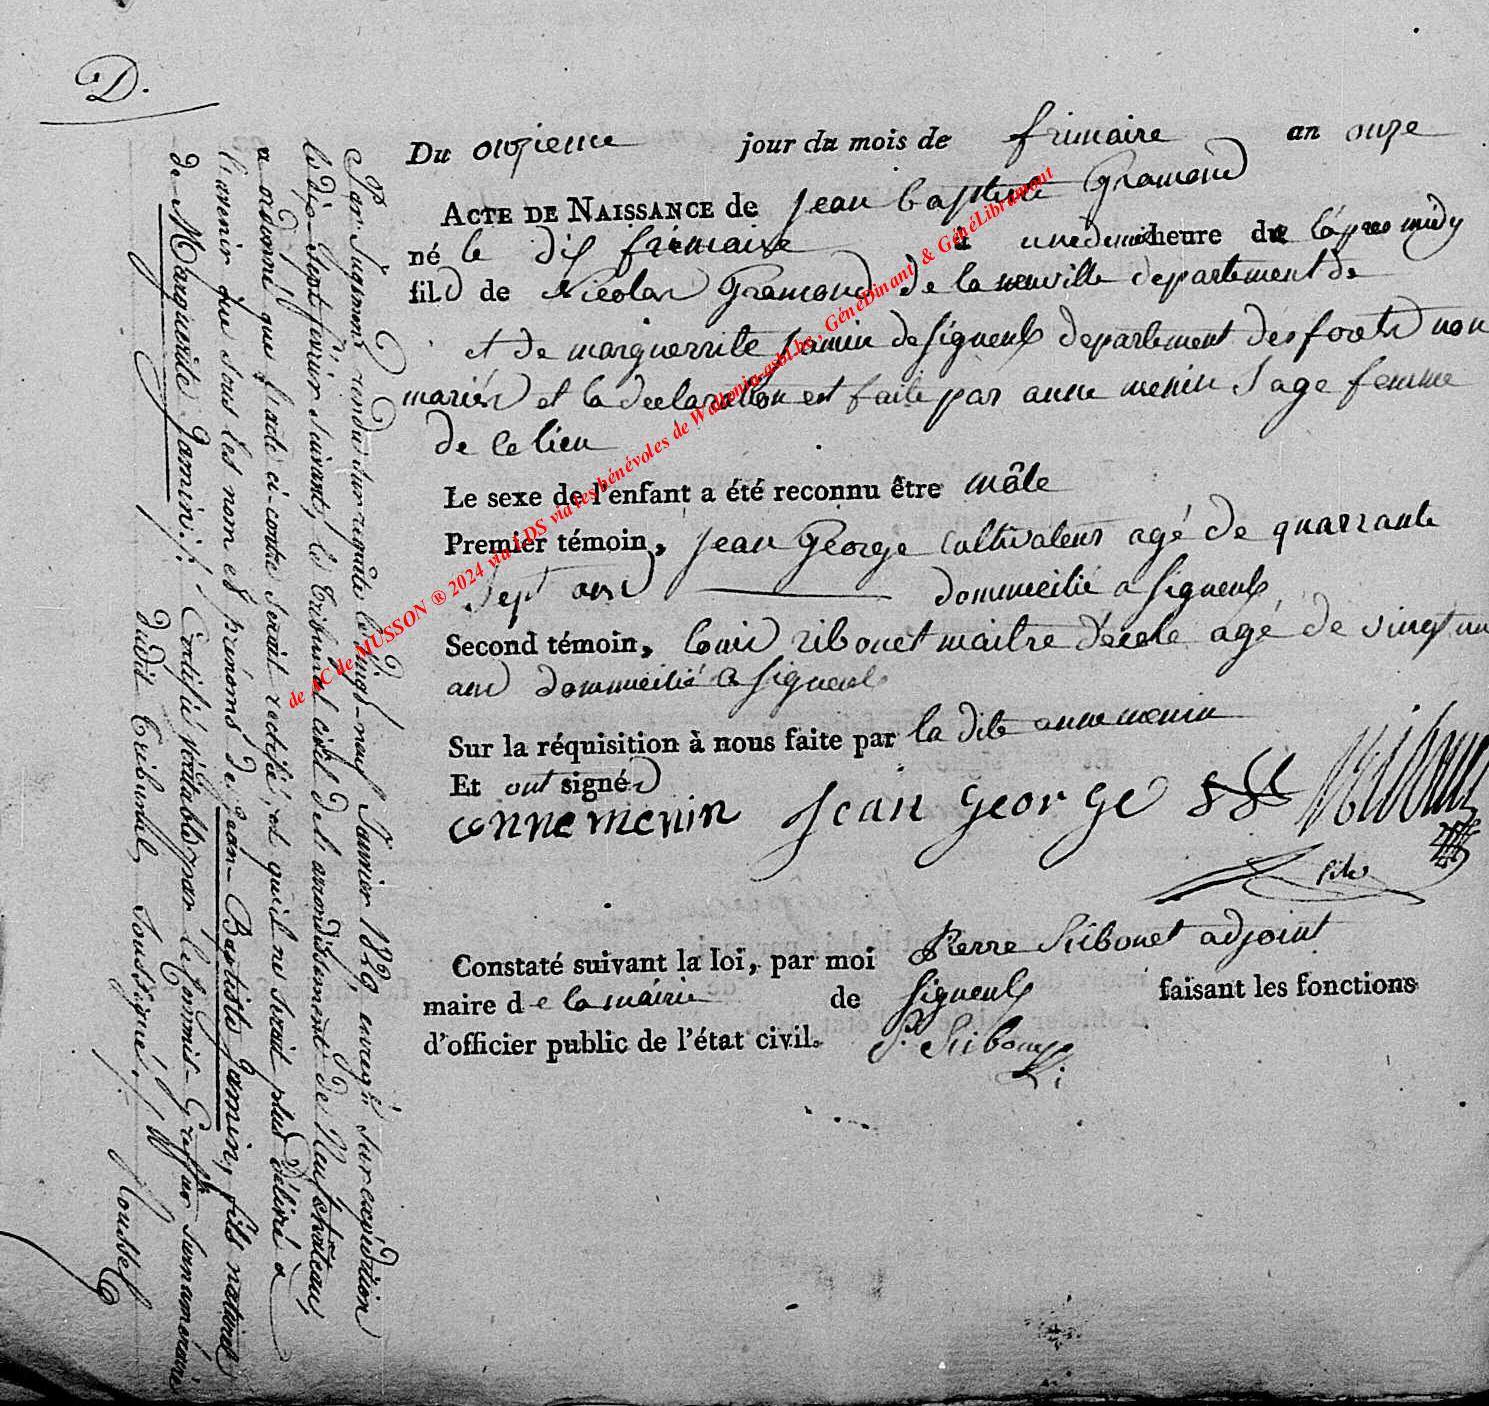 D.
Du onzieme jour du mois de frimaire an onze
ACTE DE NAISSANCE de jean baptiste Gramond
né le dix frimaire à une demie heure du l'apres midy
fils de Nicolas Gramond de la neuville departement de
et de marguerrite jamin de signeulx departement des forets non
mariés et la declaration est faite par anne menin sage femme
de ce lieu
Le sexe de l'enfant a été reconnu être mâle
Premier témoin, jean George cultivateur agé de quarrante
sept ans dommicilié a signeulx
Second témoin, louis ribonet maitre d'ecole agé de vingt un
ans dommicilié a signeulx
Sur la réquisition à nous faite par la dite anne menin
Et ont signés
anne menin jean george
Constaté suivant la loi, par moi Pierre Ribonet adjoint
maire de la mairie de signeulx faisant les fonctions
d'officier public de l'état civil. P. Ribonet
Par jugement rendu sur requête le vingt-neuf Janvier 1829, enregé sur expédition
le dix-sept février suivant, le tribunal civil de l'arrondissement de Neufchâteau,
a ordonné que l'acte ci-contre serait rectifié, et qu'il ne serait plus délivré à
l'avenir que sous les nom et prénoms de Jean-Baptiste Jamin, fils naturel
de Marguerite Jamin. Certifié véritable par le Commis-Greffier surnuméraire
dudit tribunal soussigné.
Roussel
de AC de MUSSON ® 2024 via LDS via les bénévoles de Wallonia-asbl.be, GénéDinant & GénéLibramont